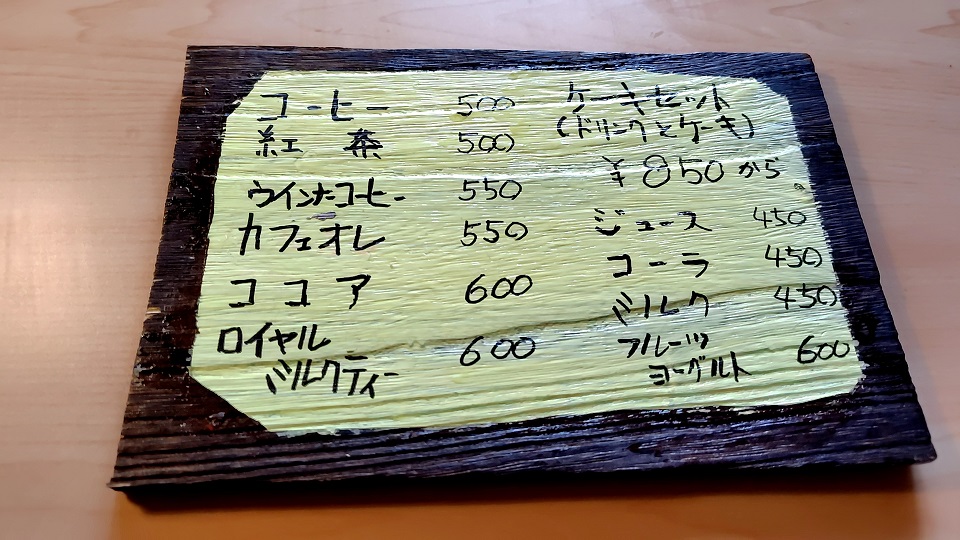 コーヒー 500
紅茶 500
ウインナーコーヒー 550
カフェオレ 550
ココア 600
ロイヤル
ミルクティー 600
ケーキセット
(ドリンクとケーキ)
¥850から
ジュース 450
コーラ 450
ミルク 450
フルーツ
ヨーグルト 600